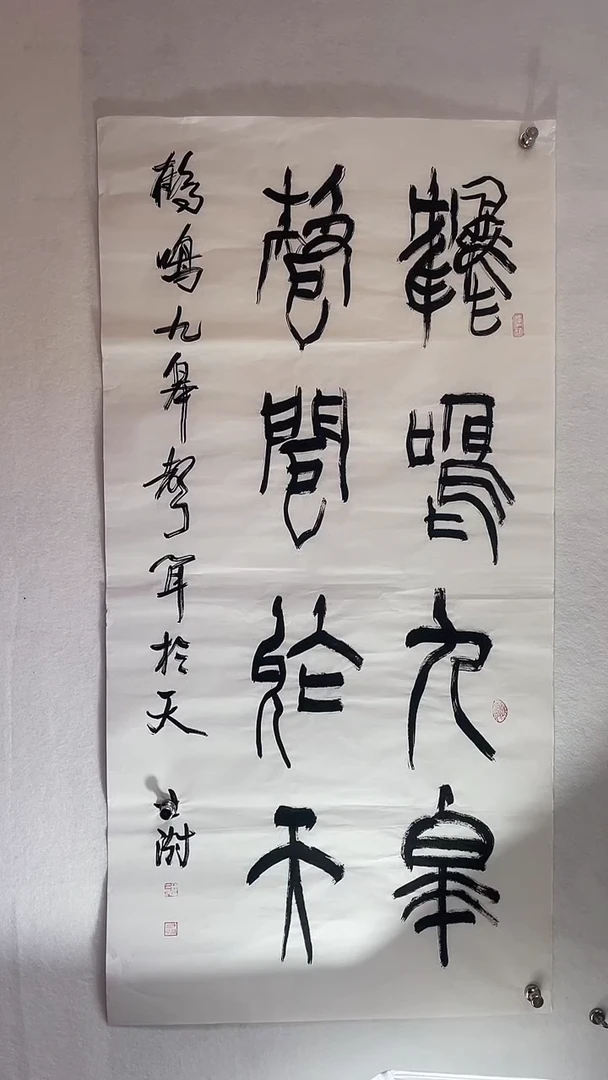 鶴鳴九皋
聲聞於天
鶴鳴九皋聲聞於天